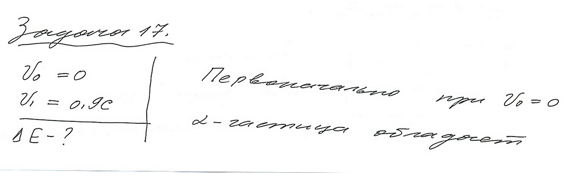 Задача 17.
V₀ = 0
V₁ = 0,9c
ΔE - ?
Первоначально при V₀ = 0
α-частица обладает